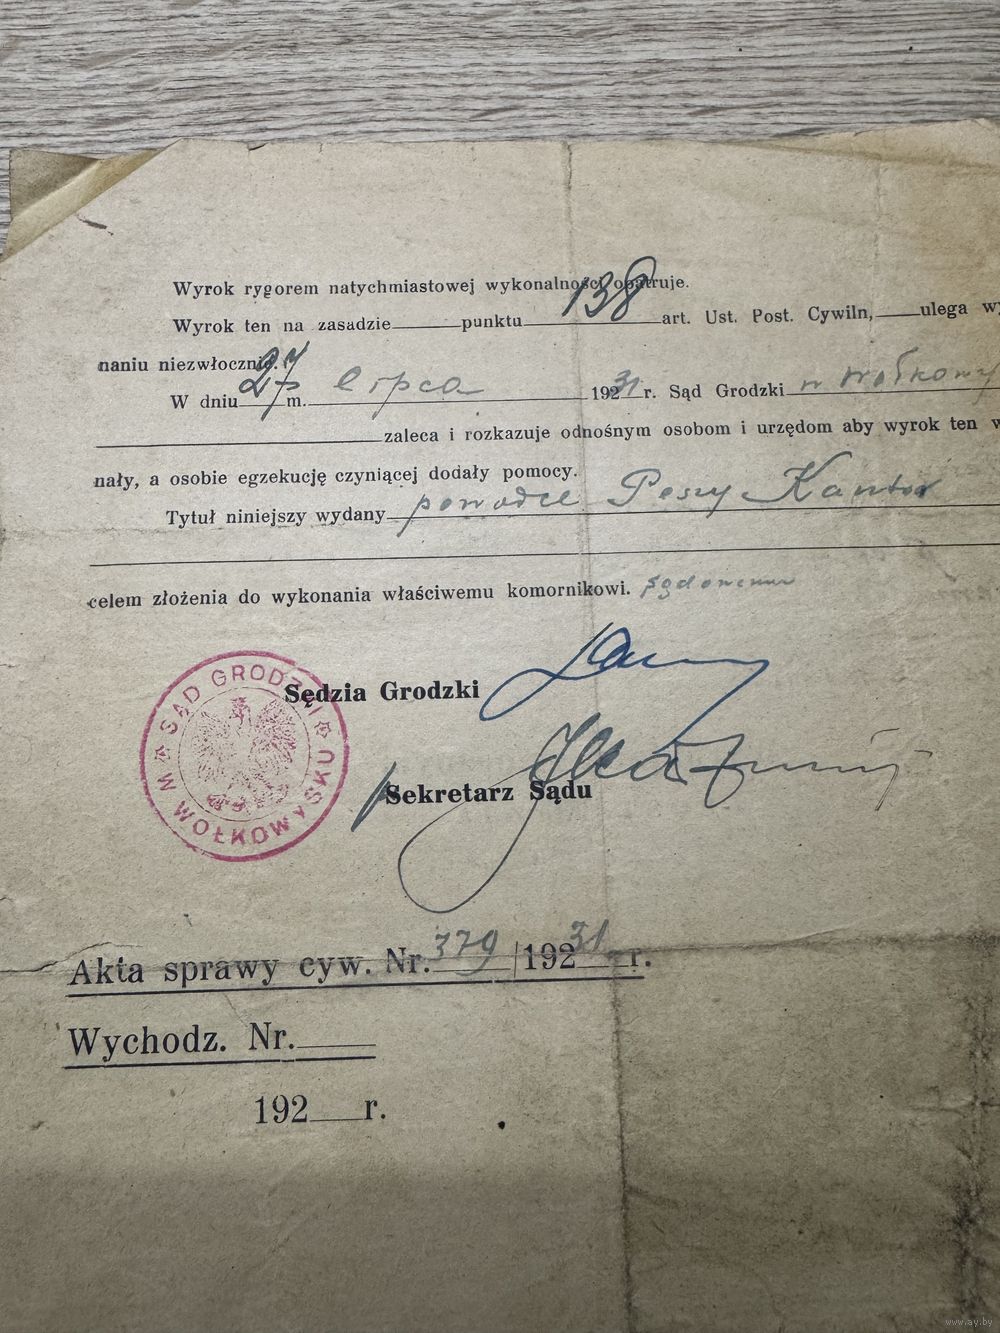 Wyrok rygorem natychmiastowej wykonalności opatruje.
Wyrok ten na zasadzie punktu 138 art. Ust. Post. Cywiln, ulega wy
naniu niezwłocznie.
W dniu 27 m. lipca 192 31 r. Sąd Grodzki w Wołkowy
zaleca i rozkazuje odnośnym osobom i urzędom aby wyrok ten w
nały, a osobie egzekucję czyniącej dodały pomocy.
Tytuł niniejszy wydany powodce Peszy Kantor
celem złożenia do wykonania właściwemu komornikowi. sądowemu
SĄD GRODZKI
W WOŁKOWYSKU
Sędzia Grodzki
Sekretarz Sądu
Akta sprawy cyw. Nr. 379 /192 31 r.
Wychodz. Nr.
192 r.
www.ay.by